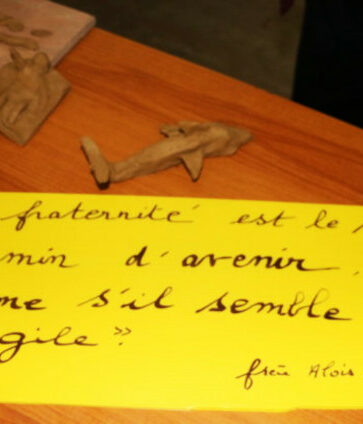 fraternité est le
min d'avenir.
me s'il semble
gile"?
frère Alois